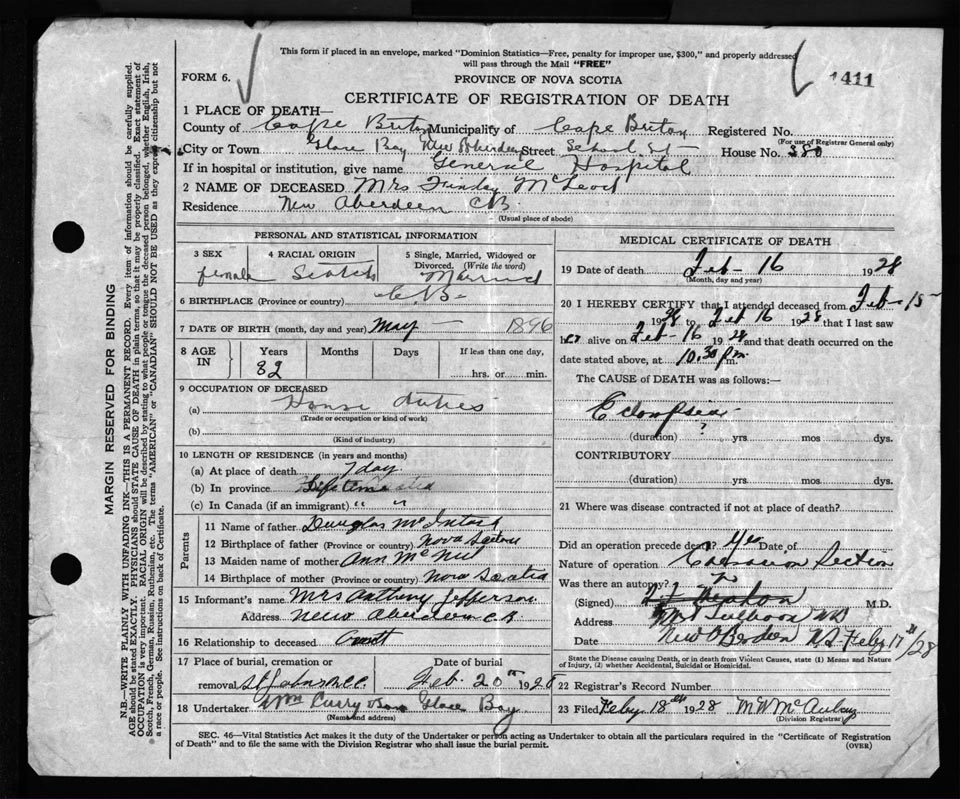 This form if placed in an envelope, marked "Dominion Statistics—Free, penalty for improper use, $300," and properly addressed
will pass through the Mail "FREE"
FORM 6.
PROVINCE OF NOVA SCOTIA
1411
CERTIFICATE OF REGISTRATION OF DEATH
1 PLACE OF DEATH—
County of Cape Breton Municipality of Cape Breton Registered No.
(For use of Registrar General only)
City or Town Glace Bay New Aberdeen Street School St House No. 380
If in hospital or institution, give name General Hospital
2 NAME OF DECEASED Mrs McLeod
Residence New Aberdeen C.B.
(Usual place of abode)
PERSONAL AND STATISTICAL INFORMATION
3 SEX 4 RACIAL ORIGIN 5 Single, Married, Widowed or Divorced. (Write the word)
female Scotch Married
6 BIRTHPLACE (Province or country) C.B.
7 DATE OF BIRTH (month, day and year) May — 1896
8 AGE IN Years Months Days If less than one day,
32 hrs. or min.
9 OCCUPATION OF DECEASED
(a) House duties
(Trade or occupation or kind of work)
(b)
(Kind of industry)
10 LENGTH OF RESIDENCE (in years and months)
(a) At place of death 1 day
(b) In province Lifetime
(c) In Canada (if an immigrant) " "
Parents
11 Name of father Douglas McIntosh
12 Birthplace of father (Province or country) Nova Scotia
13 Maiden name of mother Ann McNeil
14 Birthplace of mother (Province or country) Nova Scotia
15 Informant's name Mrs Anthony Jefferson
Address New Aberdeen C.B.
16 Relationship to deceased Aunt
17 Place of burial, cremation or removal Date of burial
Feb. 20th 1928
18 Undertaker Wm Curry & Son Glace Bay
(Name and address)
MEDICAL CERTIFICATE OF DEATH
19 Date of death Feb - 16 1928
(Month, day and year)
20 I HEREBY CERTIFY that I attended deceased from Feb - 15
1928 to Feb 16 1928 that I last saw
her alive on Feb - 16 1928 and that death occurred on the
date stated above, at 10.30 p.m.
The CAUSE of DEATH was as follows:—
Eclampsia
(duration) ? yrs. mos dys.
CONTRIBUTORY
(duration) yrs. mos dys.
21 Where was disease contracted if not at place of death?
Did an operation precede death? Yes Date of
Nature of operation Caesarian Section
Was there an autopsy?
(Signed) M.D.
Address
Date New Aberdeen N.S. Feby 17th/28
State the Disease causing Death, or in death from Violent Causes, state (1) Means and Nature
of Injury, (2) whether Accidental, Suicidal or Homicidal.
22 Registrar's Record Number
23 Filed Feby 18th 1928
(Division Registrar)
SEC. 46—Vital Statistics Act makes it the duty of the Undertaker or person acting as Undertaker to obtain all the particulars required in the "Certificate of Registration
of Death" and to file the same with the Division Registrar who shall issue the burial permit.
(OVER)
MARGIN RESERVED FOR BINDING
N.B.—WRITE PLAINLY WITH UNFADING INK—THIS IS A PERMANENT RECORD. Every item of information should be carefully supplied.
AGE should be stated EXACTLY. PHYSICIANS should STATE CAUSE OF DEATH in plain terms, so that it may be properly classified. Exact statement of
OCCUPATION is very important. RACIAL ORIGIN will be described by stating to what people or tongue the deceased person belonged, whether English, Irish,
Scotch, French, German, Russian, Ruthenian, etc. The terms "AMERICAN" or "CANADIAN" SHOULD NOT BE USED as they express citizenship but not
a race or people. See instructions on back of Certificate.